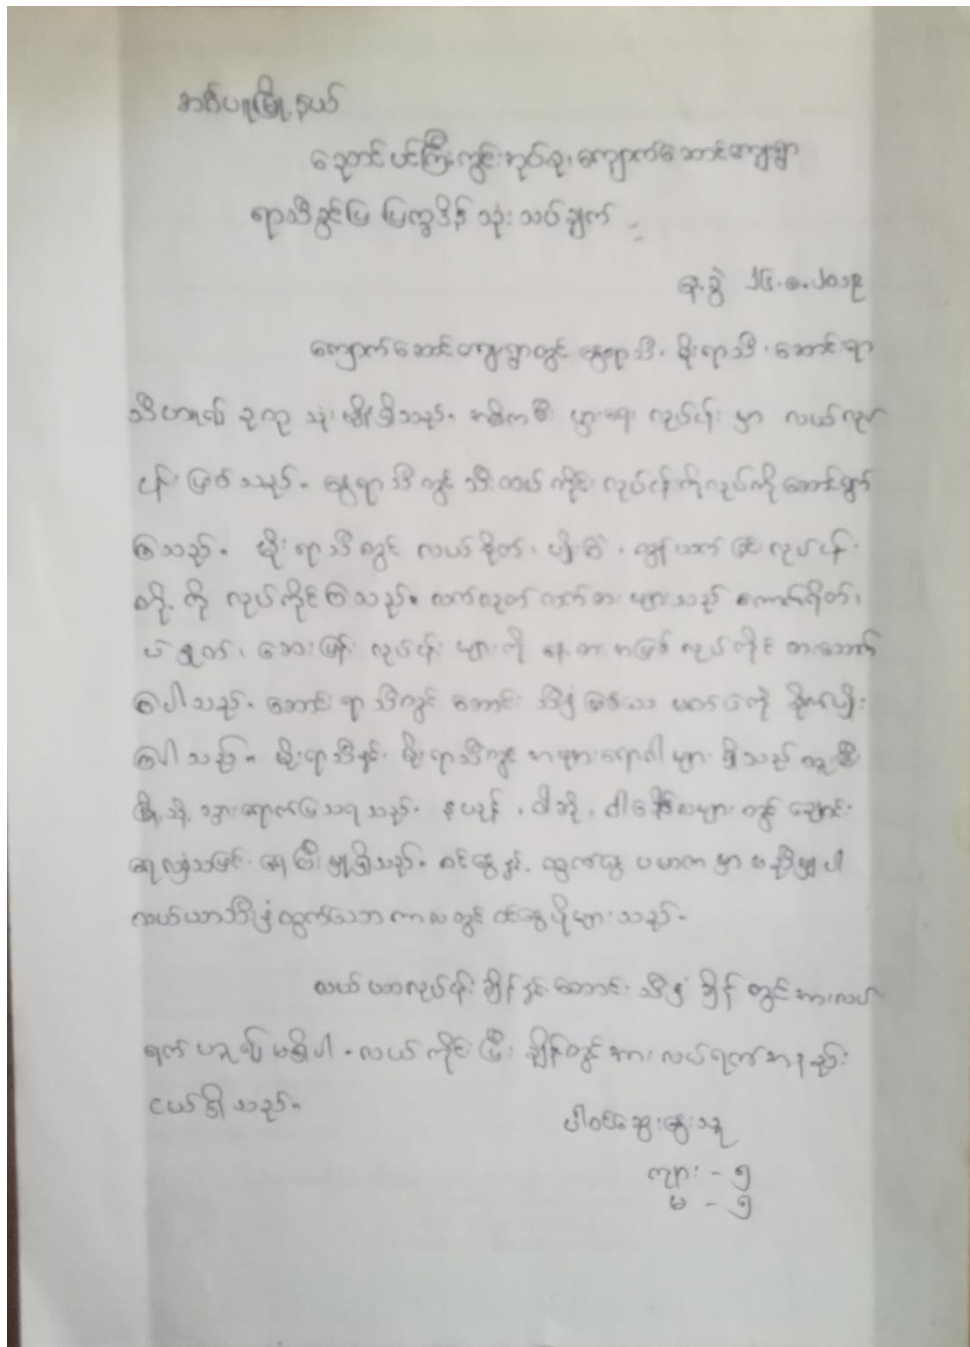 အင်္ဂပူမြို့နယ်
ညောင်ပင်ကြီးကွင်းအုပ်စု၊ ကျောက်ဆောင်ကျေးရွာ
ရာသီခွင်ပြ ပြက္ခဒိန် သုံးသပ်ချက် =
နေ့စွဲ ၂၄.၈.၂၀၁၉
ကျောက်ဆောင်ကျေးရွာတွင် နွေရာသီ၊ မိုးရာသီ၊ ဆောင်းရာ
သီဟူ၍ ဥတု သုံးမျိုးရှိသည်။ အဓိကစီးပွားရေး လုပ်ငန်းမှာ လယ်လုပ်
ငန်းဖြစ်သည်။ နွေရာသီတွင် လုပ်ငန်းကို ဆောင်ရွက်
ကြသည်။ မိုးရာသီတွင် လယ်စိုက်၊ ပျိုးကြဲ၊ လုပ်ငန်း
တို့ကို လုပ်ကိုင်ကြသည်။ လက်လုပ်လက်စားများသည် ကောက်ရိတ်၊
ဆေးဖြန်း လုပ်ငန်းများကို နေ့စားအဖြစ် လုပ်ကိုင်စားသောက်
ကြပါသည်။ ဆောင်းရာသီတွင် ဆောင်းသီးနှံဖြစ်သော မတ်ပဲကို စိုက်ပျိုး
ကြပါသည်။ မိုးရာသီနှင့် ရာသီတွင် ဖျားရောဂါများ ရှိသည်
မြို့သို့ သွားရောက်ပြသရသည်။ နယုန်၊ ဝါဆို၊ ဝါခေါင်လများတွင် ချောင်း
ရေလျှံသဖြင့် ရေကြီးမှုရှိသည်။ ဝင်ငွေနှင့် ထွက်ငွေ ပမာဏမှာ မညီမျှပါ
လယ်ယာသီးနှံထွက်သောကာလတွင် ဝင်ငွေပိုများသည်။
လယ်ယာလုပ်ငန်းချိန်နှင့် ဆောင်းသီးနှံချိန်တွင် အားလပ်
ရက်ဟူ၍ မရှိပါ။ လယ်ကိုင်းပြီးချိန်တွင် အားလပ်ရက် အနည်း
ငယ်ရှိသည်။
ပါဝင်ဆွေးနွေးသူ
ကျား - ၅
မ - ၅